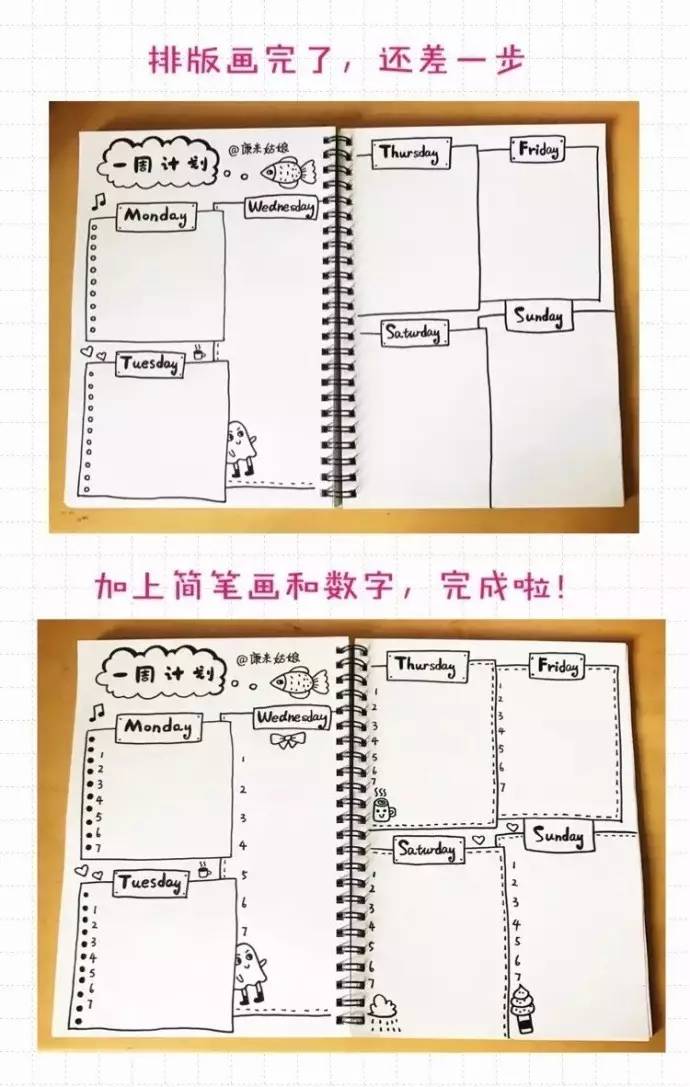 排版画完了，还差一步
一周计划
@康未姑娘
Monday
Wednesday
Tuesday
Thursday
Friday
Saturday
Sunday
加上简笔画和数字，完成啦！
一周计划
@康未姑娘
Monday
1
2
3
4
5
6
7
Wednesday
1
2
3
4
5
6
7
Tuesday
1
2
3
4
5
6
7
Thursday
1
2
3
4
5
6
7
Friday
1
2
3
4
5
6
7
Saturday
1
2
3
4
5
6
7
Sunday
1
2
3
4
5
6
7